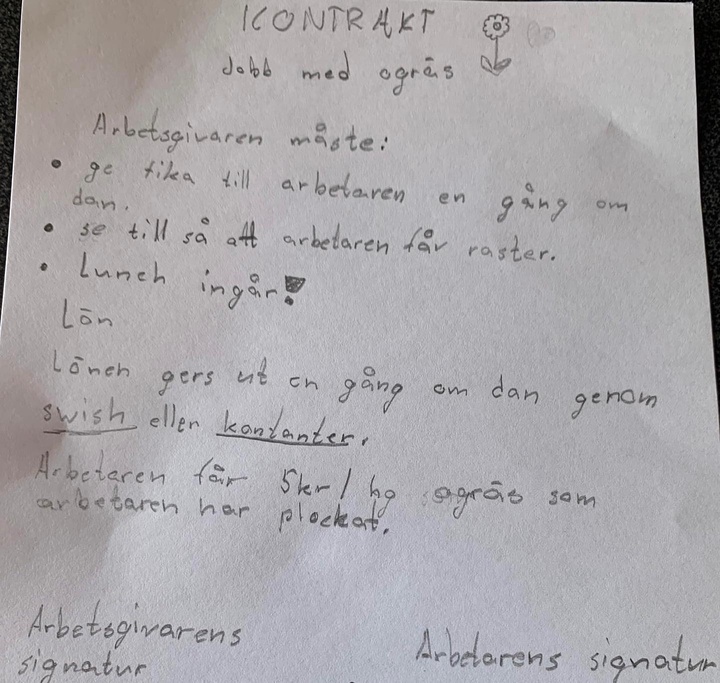 KONTRAKT
Jobb med ogräs
Arbetsgivaren måste:
• ge fika till arbetaren en gång om
dan.
• se till så att arbetaren får raster.
• Lunch ingår!
Lön
Lönen gers ut en gång om dan genom
swish eller kontanter.
Arbetaren får 5kr/kg ogräs som
arbetaren har plockat.
Arbetsgivarens
signatur
Arbetarens signatur